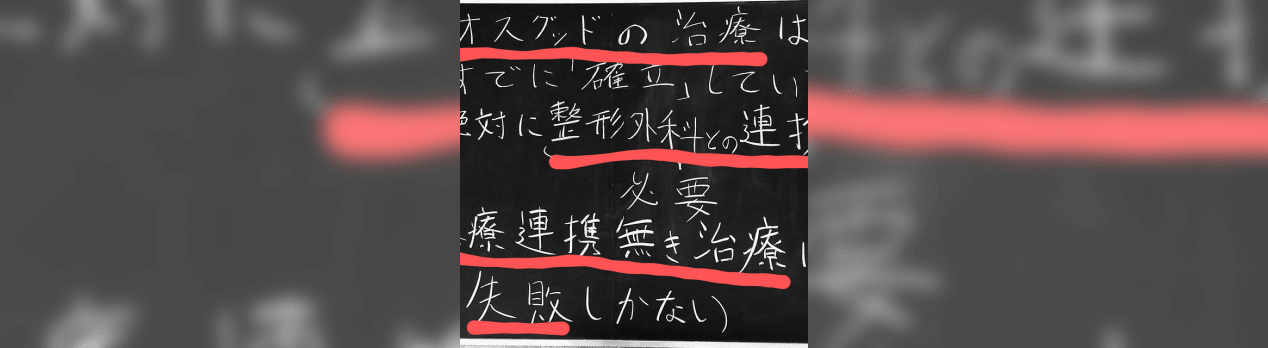 オスグッドの治療は
すでに「確立」してい
絶対に整形外科との連携
必要
療連携無き治療は
失敗しかない